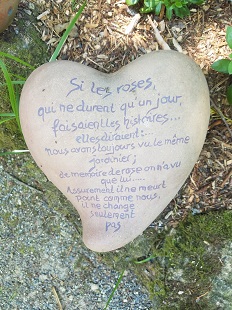 Si les roses,
qui ne durent qu'un jour,
faisaient les histoires...
elles diraient:
nous avons toujours vu le même
jardinier;
de mémoire de rose on n'a vu
que lui....
Assurément il ne meurt
point comme nous,
il ne change
seulement
pas